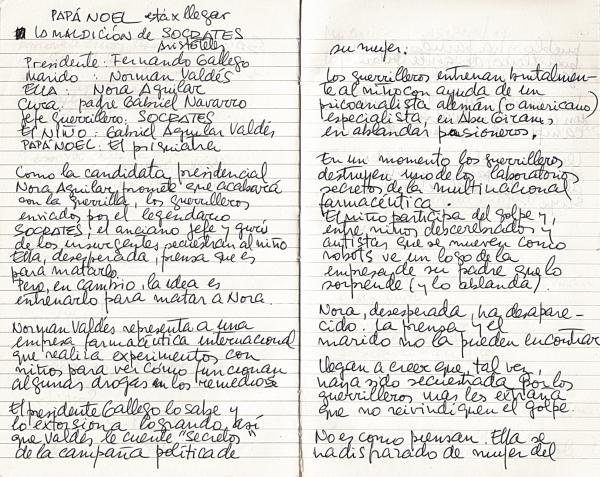 PAPÁ NOEL está x llegar
LA MALDICIÓN de SOCRATES
Aristóteles
Presidente: Fernando Gallego
Marido: Norman Valdés
ELLA: Nora Aguilar
Cura: padre Gabriel Navarro
Jefe guerrillero: SOCRATES
El NIÑO: Gabriel Aguilar Valdés
PAPÁ NOEL: El psiquiatra
Como la candidata presidencial
Nora Aguilar, promete que acabará
con la guerrilla, los guerrilleros
enviados por el legendario
SOCRATES, el anciano jefe y gurú
de los insurgentes secuestran al niño
Ella, desesperada, piensa que es
para matarlo.
Pero, en cambio, la idea es
entrenarlo para matar a Nora.
Norman Valdés representa a una
empresa farmacéutica internacional
que realiza experimentos con
niños para ver cómo funcionan
algunas drogas en los remedios
El presidente Gallego lo sabe y
lo extorsiona logrando, así
que Valdés le cuente "secretos"
de la campaña política de
su mujer.
Los guerrilleros entrenan brutalmen-
te al niño con ayuda de un
psicoanalista alemán (o americano)
especialista en Abu Grahib
en ablandar prisioneros.
En un momento los guerrilleros
destruyen uno de los laboratorios
secretos de la multinacional
farmacéutica.
El niño participa del golpe y,
entre niños descerebrados y
autistas que se mueven como
robots ve un logo de la
empresa de su padre que lo
sorprende (y lo ablanda).
Nora, desesperada, ha desapare-
cido. La prensa y el
marido no la pueden encontrar
Llegan a creer que, tal vez,
haya sido secuestrada por los
guerrilleros mas les extraña
que no reivindiquen el golpe.
No es como piensan. Ella se
ha disfrazado de mujer del